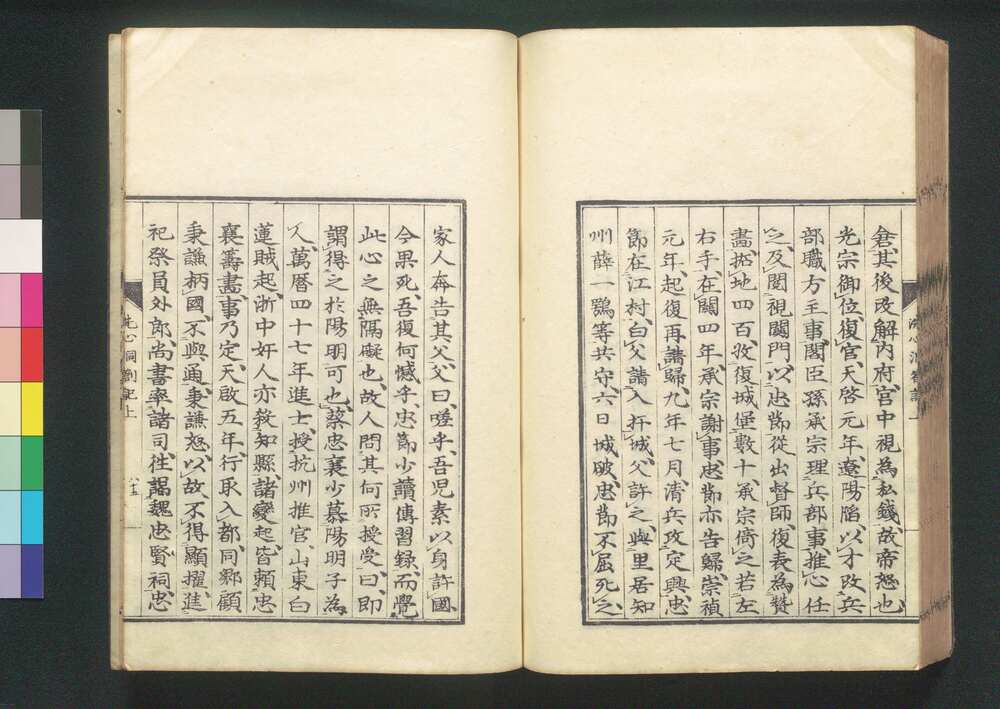 倉、其後改解內府、宮中視爲私錢、故帝怒也、
光宗御位、復官、天啓元年、遼陽陷、以才改兵
部職方主事、閣臣孫承宗理兵部事、推心任
之、及閱視關門、以忠節從、出督師、復表爲贊
畫、拓地四百、收復城堡數十、承宗倚之若左
右手、在關四年、承宗謝事、忠節亦告歸、崇禎
元年、起復再請歸、九年七月、清兵攻定興、忠
節在江村、白父請入扞城、父許之、與里居知
州薛一鶚等共守、六日城破、忠節不屈死之、
家人奔告其父、父曰嗟乎、吾兒素以身許國、
今果死、吾復何憾乎、忠節少讀傳習錄、而覺
此心之無隔礙也、故人問其何所授受、曰、卽
謂得之於陽明可也、蔡忠襄少慕陽明子爲
人、萬曆四十七年進士、授杭州推官、山東白
蓮賊起、浙中奸人亦殺知縣、諸變起、皆賴忠
襄籌畫、事乃定、天啓五年、行取入都、同鄉顧
秉謙柄國、不與通、秉謙怒、以故不得顯擢、進
祀祭員外郎、尚書率諸司、往謁魏忠賢祠、忠
洗心洞劄記上
六十五